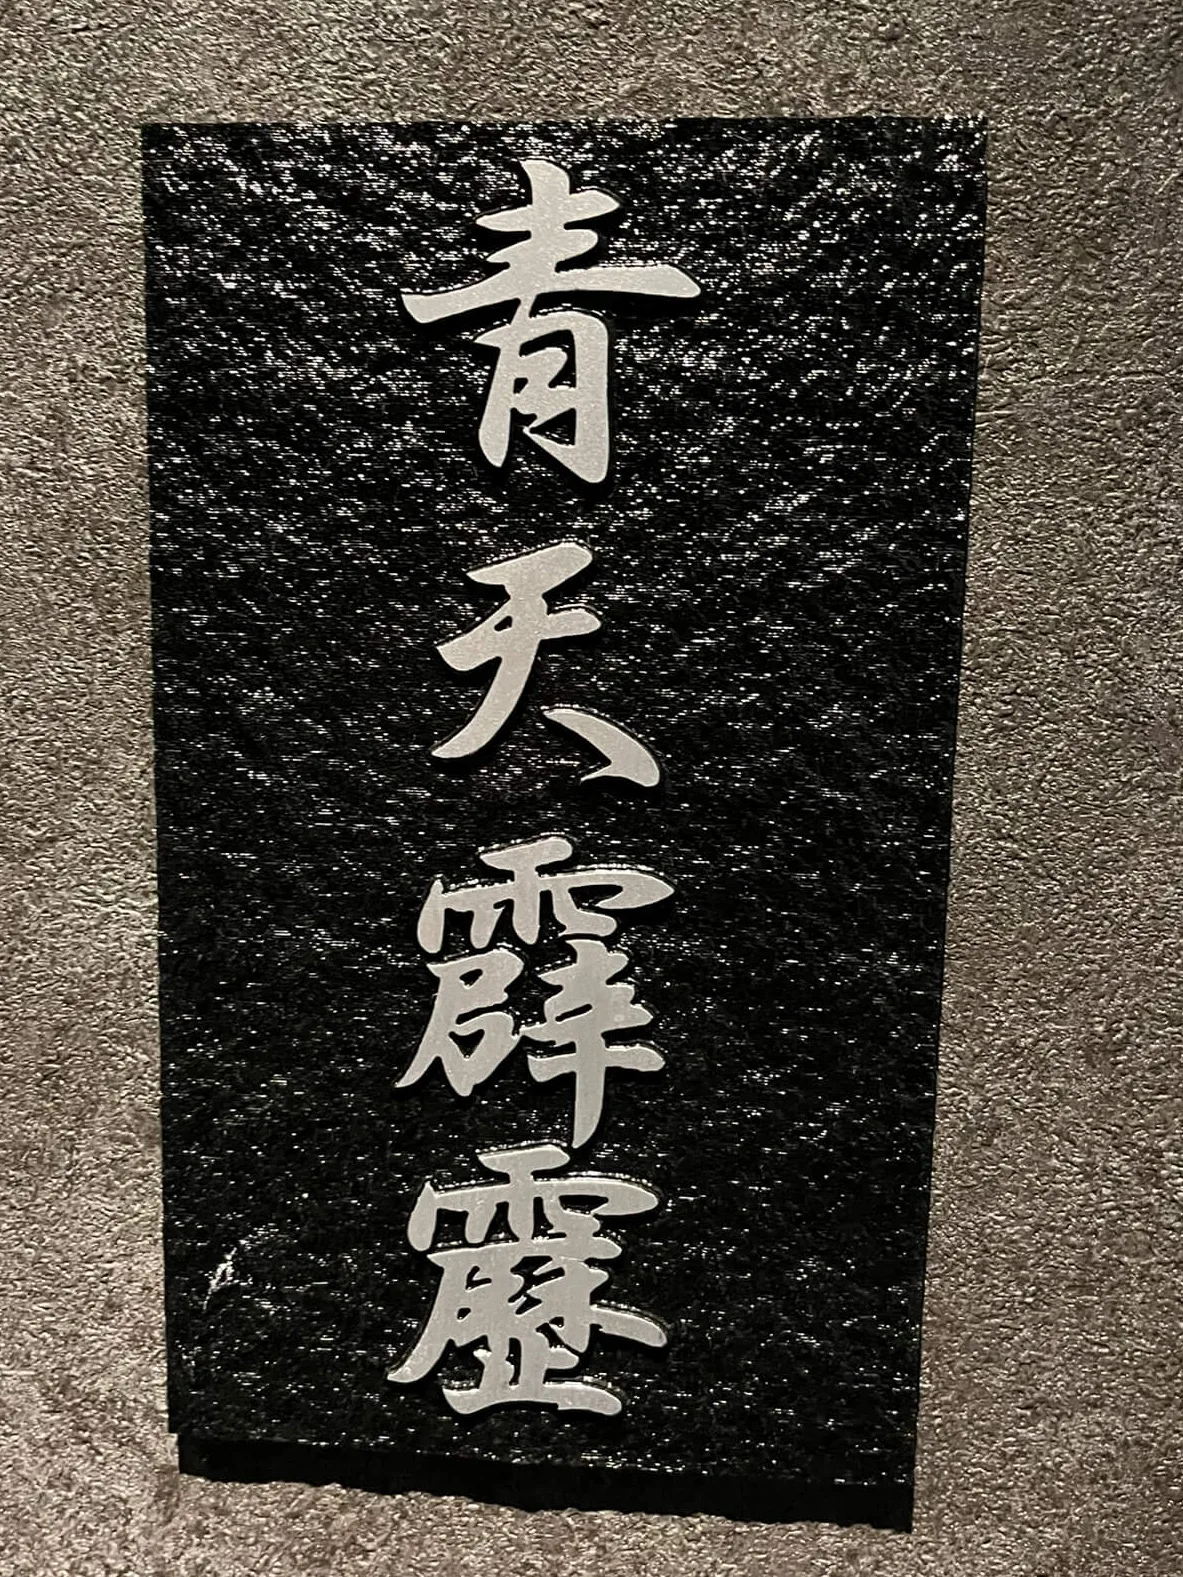 青天霹靂